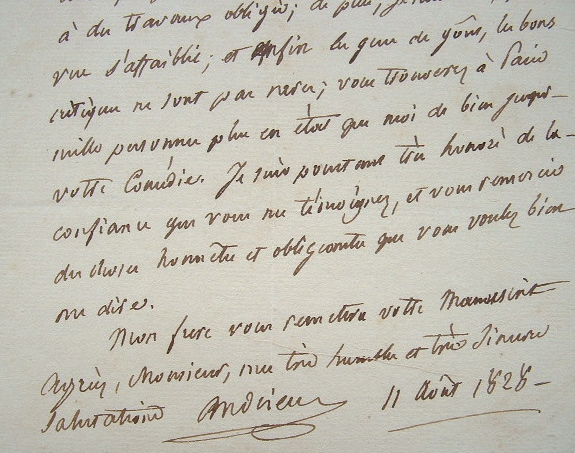 à des travaux obligés; de plus, je
vue s'affaiblit; et enfin les gens de goût, les bons
critiques ne sont pas rares; vous trouverez à Paris
mille personnes plus en état que moi de bien juger
votre Comédie. Je suis pourtant très honoré de la
confiance que vous me témoignez, et vous remercie
des choses honnêtes et obligeantes que vous voulez bien
me dire.
Mon frère vous remettra votre Manuscrit
Agréez, Monsieur, mes très humbles et très sincères
Salutations Andrieux 11 Août 1828